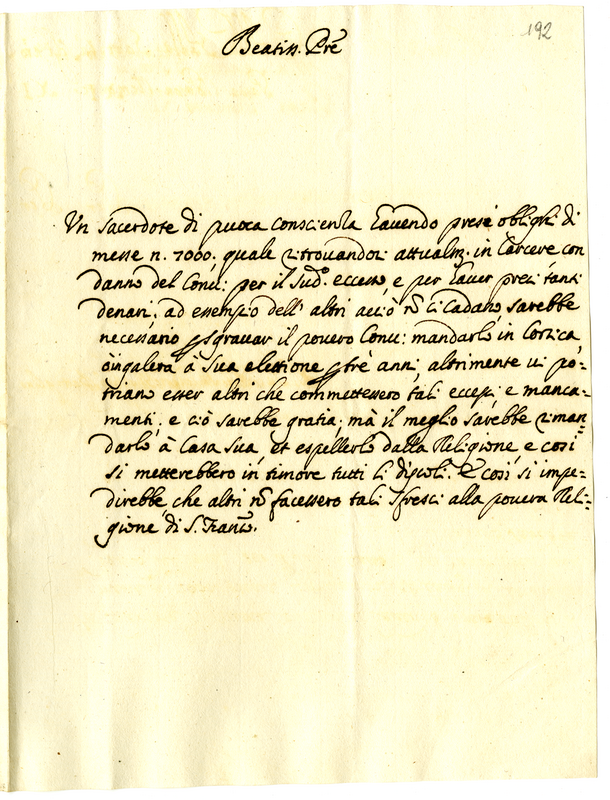 192
Beatiss. Prē
Un Sacerdote di puoca conscienza havendo prese oblighi di
messe n. 7000. quale ritrovandosi attualm. in Carcere con
danno del Conv: per il Sud.o eccesso, e per haver presi tanti
denari, ad essempio dell' altri acciò nō ci Cadano, sarebbe
necessario p sgravar il povero Conv: mandarlo in Corsica,
ò in galera à Sua elettione p trè anni, altrimente vi po=
triano esser altri che commettessero tali eccessi, e manca=
menti, e ciò sarebbe gratia; mà il meglio sarebbe riman=
darlo à Casa sua, et espellerlo dalla Religione, e così
si metterebbero in timore tutti li discoli. E così si impe=
direbbe, che altri nō facessero tali sfresci alla povera Reli=
gione di S. Franc.o